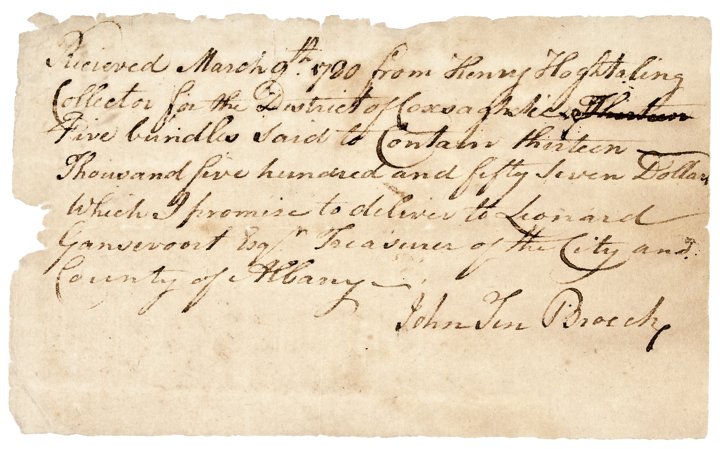 Recieved March 9th 1780 from Henry Hoghtaling
Collector for the District of Coxsaghkie Thirteen
Five bundles said to Contain thirteen
Thousand five hundred and fifty Seven Dollars
Which I promise to deliver to Leonard
Gansevoort Esqr Treasurer of the City and
County of Albany
John Ten Broeck